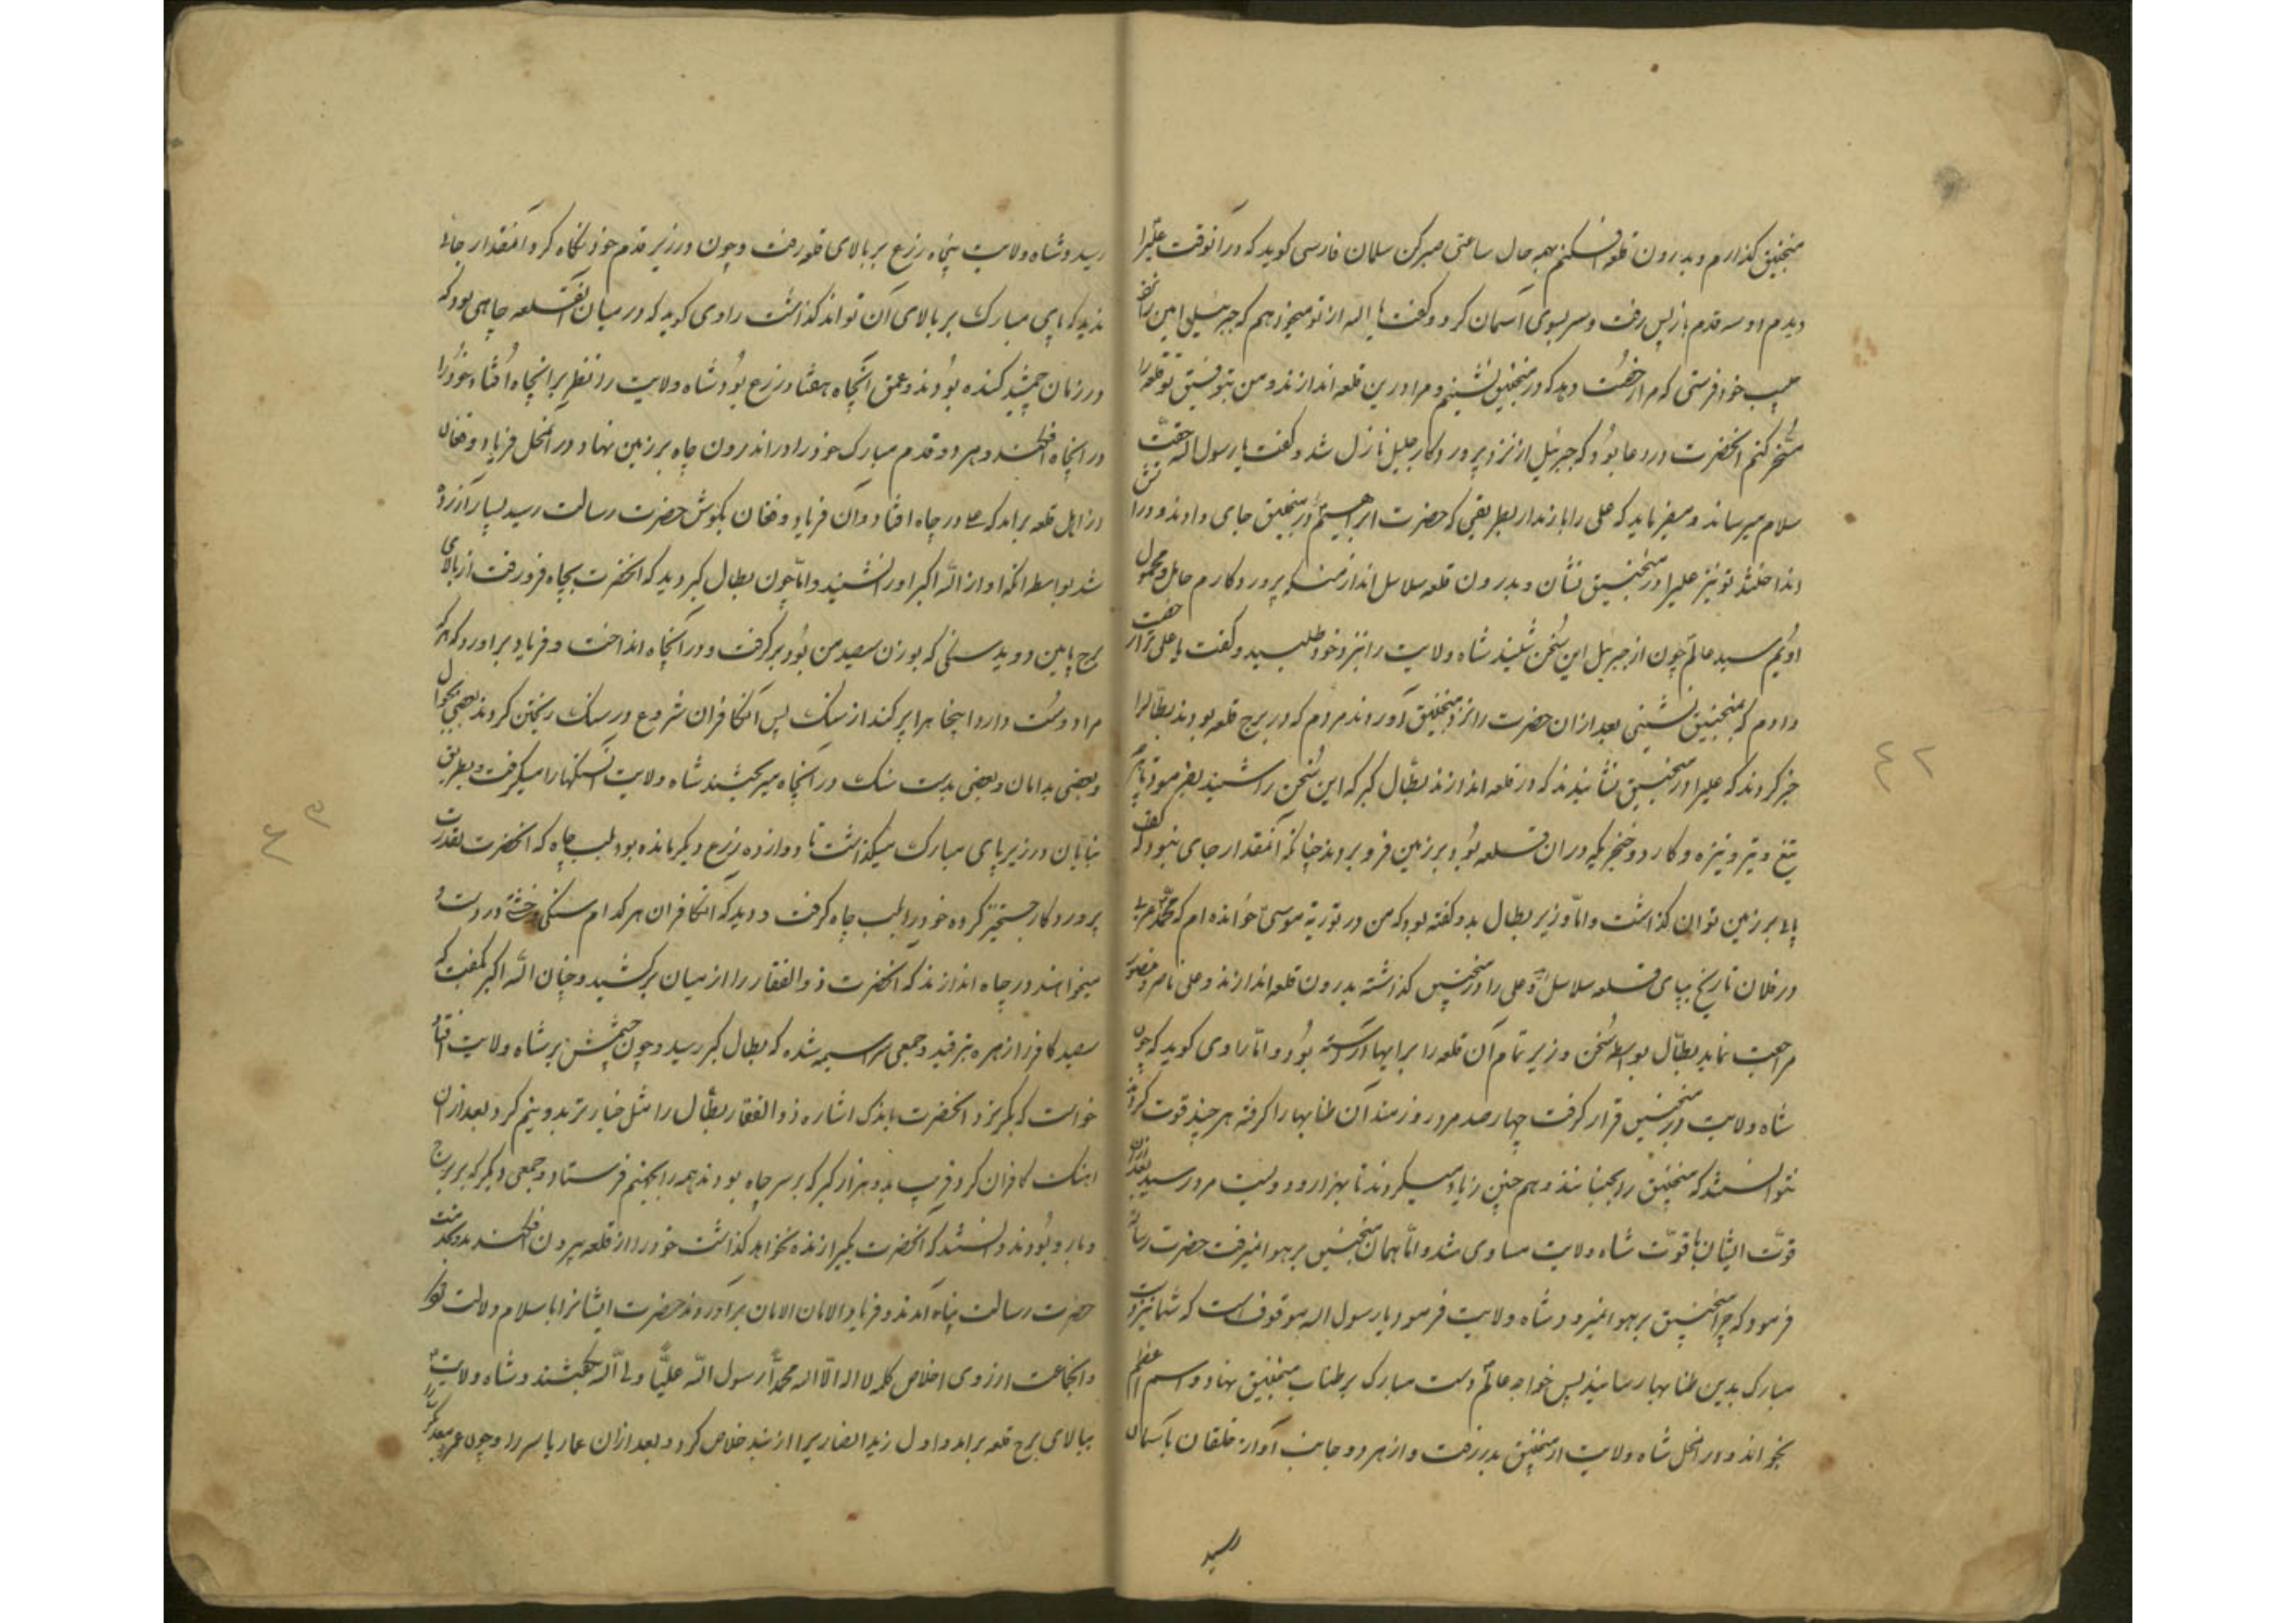 منجنیق گذارم و بدرون قلعه افکنم بهر حال ساعتی صبر کن سلمان فارسی گوید که در آنوقت علیرا
دیدم او سه قدم باز پس رفت و سر بسوی آسمان کرد و گفت یا اله از تو میخواهم که جبرئیل امین را نزد
حبیب خود فرستی که مرا رخصت دهد که در منجنیق نشینم و مرا درین قلعه اندازند و من بتوفیق تو قلعه را
مسخر کنم آنحضرت در دعا بود که جبرئیل از نزد پروردگار جلیل نازل شد و گفت یا رسول اله حقت
سلام میرساند و میفرماید که علی را باز ندار بطریقی که حضرت ابراهیم در منجنیق جای دادند و در آتش
انداختند تو نیز علیرا در منجنیق نشان و بدرون قلعه سلاسل انداز منکه پروردگارم حامل و محمول
اویم سید عالم چون از جبرئیل این سخن شنید شاه ولایت را نزد خود طلبید و گفت یا علی ترا رخصت
دادم که بمنجنیق نشینی بعد از ان حضرت را نزد منجنیق آوردند مردم که در برج قلعه بودند بطال را
خبر کردند که علیرا در منجنیق نشانیدند که در قلعه اندازند بطّال گبر که این سخن را شنید بفرمود تا هر
تیغ و تیر و نیزه و کارد و خنجر که در ان قلعه بود بر زمین فرو بردند چنانکه آنمقدار جای نبود که کف
پای بر زمین توان گذاشت و امّا وزیر بطال بدو گفته بود که من در توریة موسی خوانده ام که محمّد عربی
در فلان تاریخ بپای قلعه سلاسل آید و علی را در منجنیق گذاشته بدرون قلعه اندازند و علی ناصر و منصور
مراجعت نماید بطّال بواسطه سخن وزیر تمام آن قلعه را برابها آراسته بود و امّا راوی گوید که چون
شاه ولایت در منجنیق قرار گرفت چهار صد مرد زورمند آن طنابها را گرفته هر چند قوت کردند
نتوانستند که منجنیق را بجنبانند و هم چنین زیاد میکردند تا بهزار و دویست مرد رسید بعد از ان
قوّت ایشان با قوّت شاه ولایت مساوی شد و امّا همان منجنیق بر هوا نمیرفت حضرت رسالت
فرمود که چرا منجنیق بر هوا نمیرود شاه ولایت فرمود یا رسول اله موقوف است که شما نیز دست
مبارک بدین طنابها رسانید پس خواجه عالم دست مبارک بر طناب منجنیق نهاد و اسم اعظم
بخواند و در انحل شاه ولایت از منجنیق بدر رفت و از هر دو جانب آواز خلقان بآسمان
رسید
رسید و شاه ولایت پنجاه زرع بر بالای قلعه رفت و چون در زیر قدم خود نگاه کرد آنمقدار جای
ندید که پای مبارک بر بالای آن تواند گذاشت راوی گوید که در میان آن قلعه چاهی بود که
در زمان جمشید کنده بودند و عمق آنچاه هفتاد زرع بود شاه ولایت را نظر بر انچاه افتاد خود را
در انچاه افکند و هر دو قدم مبارک خود را در اندرون چاه بر زمین نهاد در آنمحل فریاد و فغان
از اهل قلعه برامد که علی در چاه افتاد و آن فریاد و فغان بگوش حضرت رسالت رسید بسیار آزرده
شد بواسطه آنکه اواز الّه اکبر او را نشنید و امّا چون بطال گبر دید که آنحضرت بچاه فرو رفت از بالای
برج پایین دوید سنگی که بوزن سیصد من بود بر گرفت و در آنچاه انداخت و فریاد براورد که هر که
مرا دوست دارد اینچاه را پر کند از سنگ پس آنکافران شروع در سنگ ریختن کردند بعضی بجوال
و بعضی بدامان و بعضی بدست سنگ در انچاه میریختند شاه ولایت آن سنگها را میگرفت و بطریق
بنایان در زیر پای مبارک میگذاشت تا دوازده زرع دیگر مانده بود بلب چاه که آنحضرت بقدرت
پروردگار جستخیز کرده خود را بلب چاه گرفت و دید که آنکافران هر کدام سنگی و خشتی در دست
میخواهند در چاه اندازند که آنحضرت ذو الفقار را از میان برکشید و چنان الّه اکبر گفت که
سیصد کافر از زهره بترقید و جمعی سراسیمه شده که بطال گبر رسید و چون چشمش بر شاه ولایت افتاد
خواست که بگریزد آنحضرت باندک اشاره ذو الفقار بطّال را مثل خیار تر بدو نیم کرد بعد از ان
اهنک کافران کرد قریب بدو هزار گبر که بر سر چاه بودند همه را بجهنم فرستاد و جمعی دیگر که بر برج
و بارو بودند دانستند که آنحضرت یکیرا زنده نخواهد گذاشت خود را از قلعه بیرون افکندند و بخدمت
حضرت رسالت پناه آمدند و فریاد الامان الامان براوردند حضرت ایشانرا باسلام دلالت نمود
و انجماعت از روی اخلاص کلمه لا اله الّا اله محمّدا رسول الّه علیّا ولی الّه بگفتند و شاه ولایت
ببالای برج قلعه برامد و اول زید انصاریرا از بند خلاص کرد و بعد از ان عمار یاسر را و چون عمرو معد کرب را